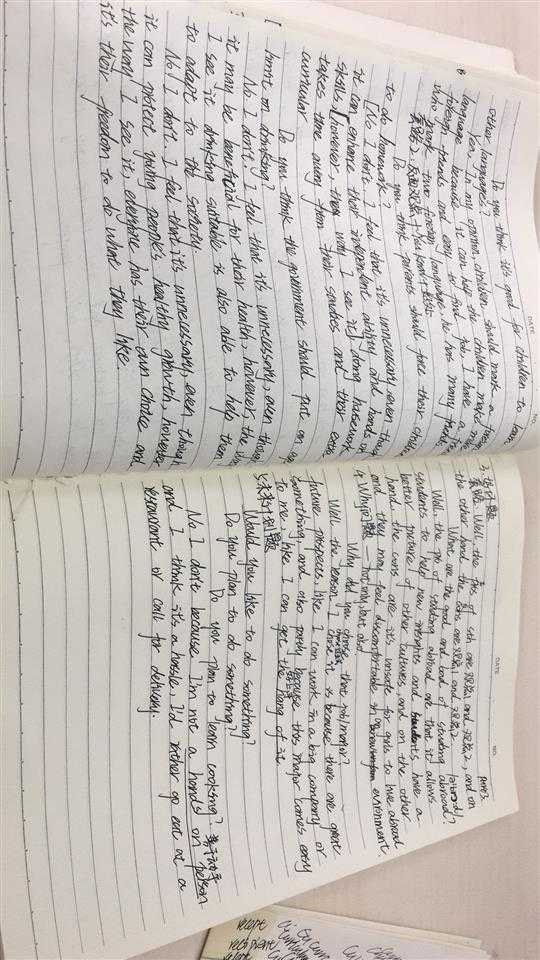 DATE
NO.
Do you think it's good for children to learn
other languages?
Yes, in my opinion, children should
language because it can help the children make more
foreign friends and easy to find a job. I have a
who two foreign language, he has many
Do you think parents should force their
to do homework?
No I don't. I feel that it's unnecessary, even though
it can enhance their independent ability and hands on
skills, however, the way I see it, doing housework
takes time away from their studies and their extra
curricular
Do you think the government should put on age
limit on drinking?
No I don't. I feel that it's unnecessary, even though
it may be beneficial for their health, however, the way
I see it drinking suitable is also able to help them
to adapt to the society
No I don't. I feel that it's unnecessary, even though
it can protect young people's healthy growth, however
the way I see it, everyone has their own choice and
it's their freedom to do what they like.
DATE
NO.
Part3
3, 题
套路. Well, the pros of sth are 观点1 and 观点2, and on
the other hand the cons are 观点1 and 观点2.
What are the good and bad of studying abroad?
Well the pro of studying abroad are that it allows
students to help new and students have a
better picture of other cultures, and on the other
hand the cons are it's unsafe for girls to live abroad
and they may feel discomfortable in environment.
4. Why问题 — not only, but also
Why did you choose that job/major?
Well the reason I chose it is because there are great
future prospects, like I can work in a big company or
something, and also partly because this major comes easy
to me, like I can get the hang of it
未来计划题
Would you like to do something?
Do you plan to do something?
Do you plan to learn cooking?
No I don't because I'm not a hands on person
and I think it's a hassle, I'd rather go eat at a
restaurant or call for delivery.
recept
recipient